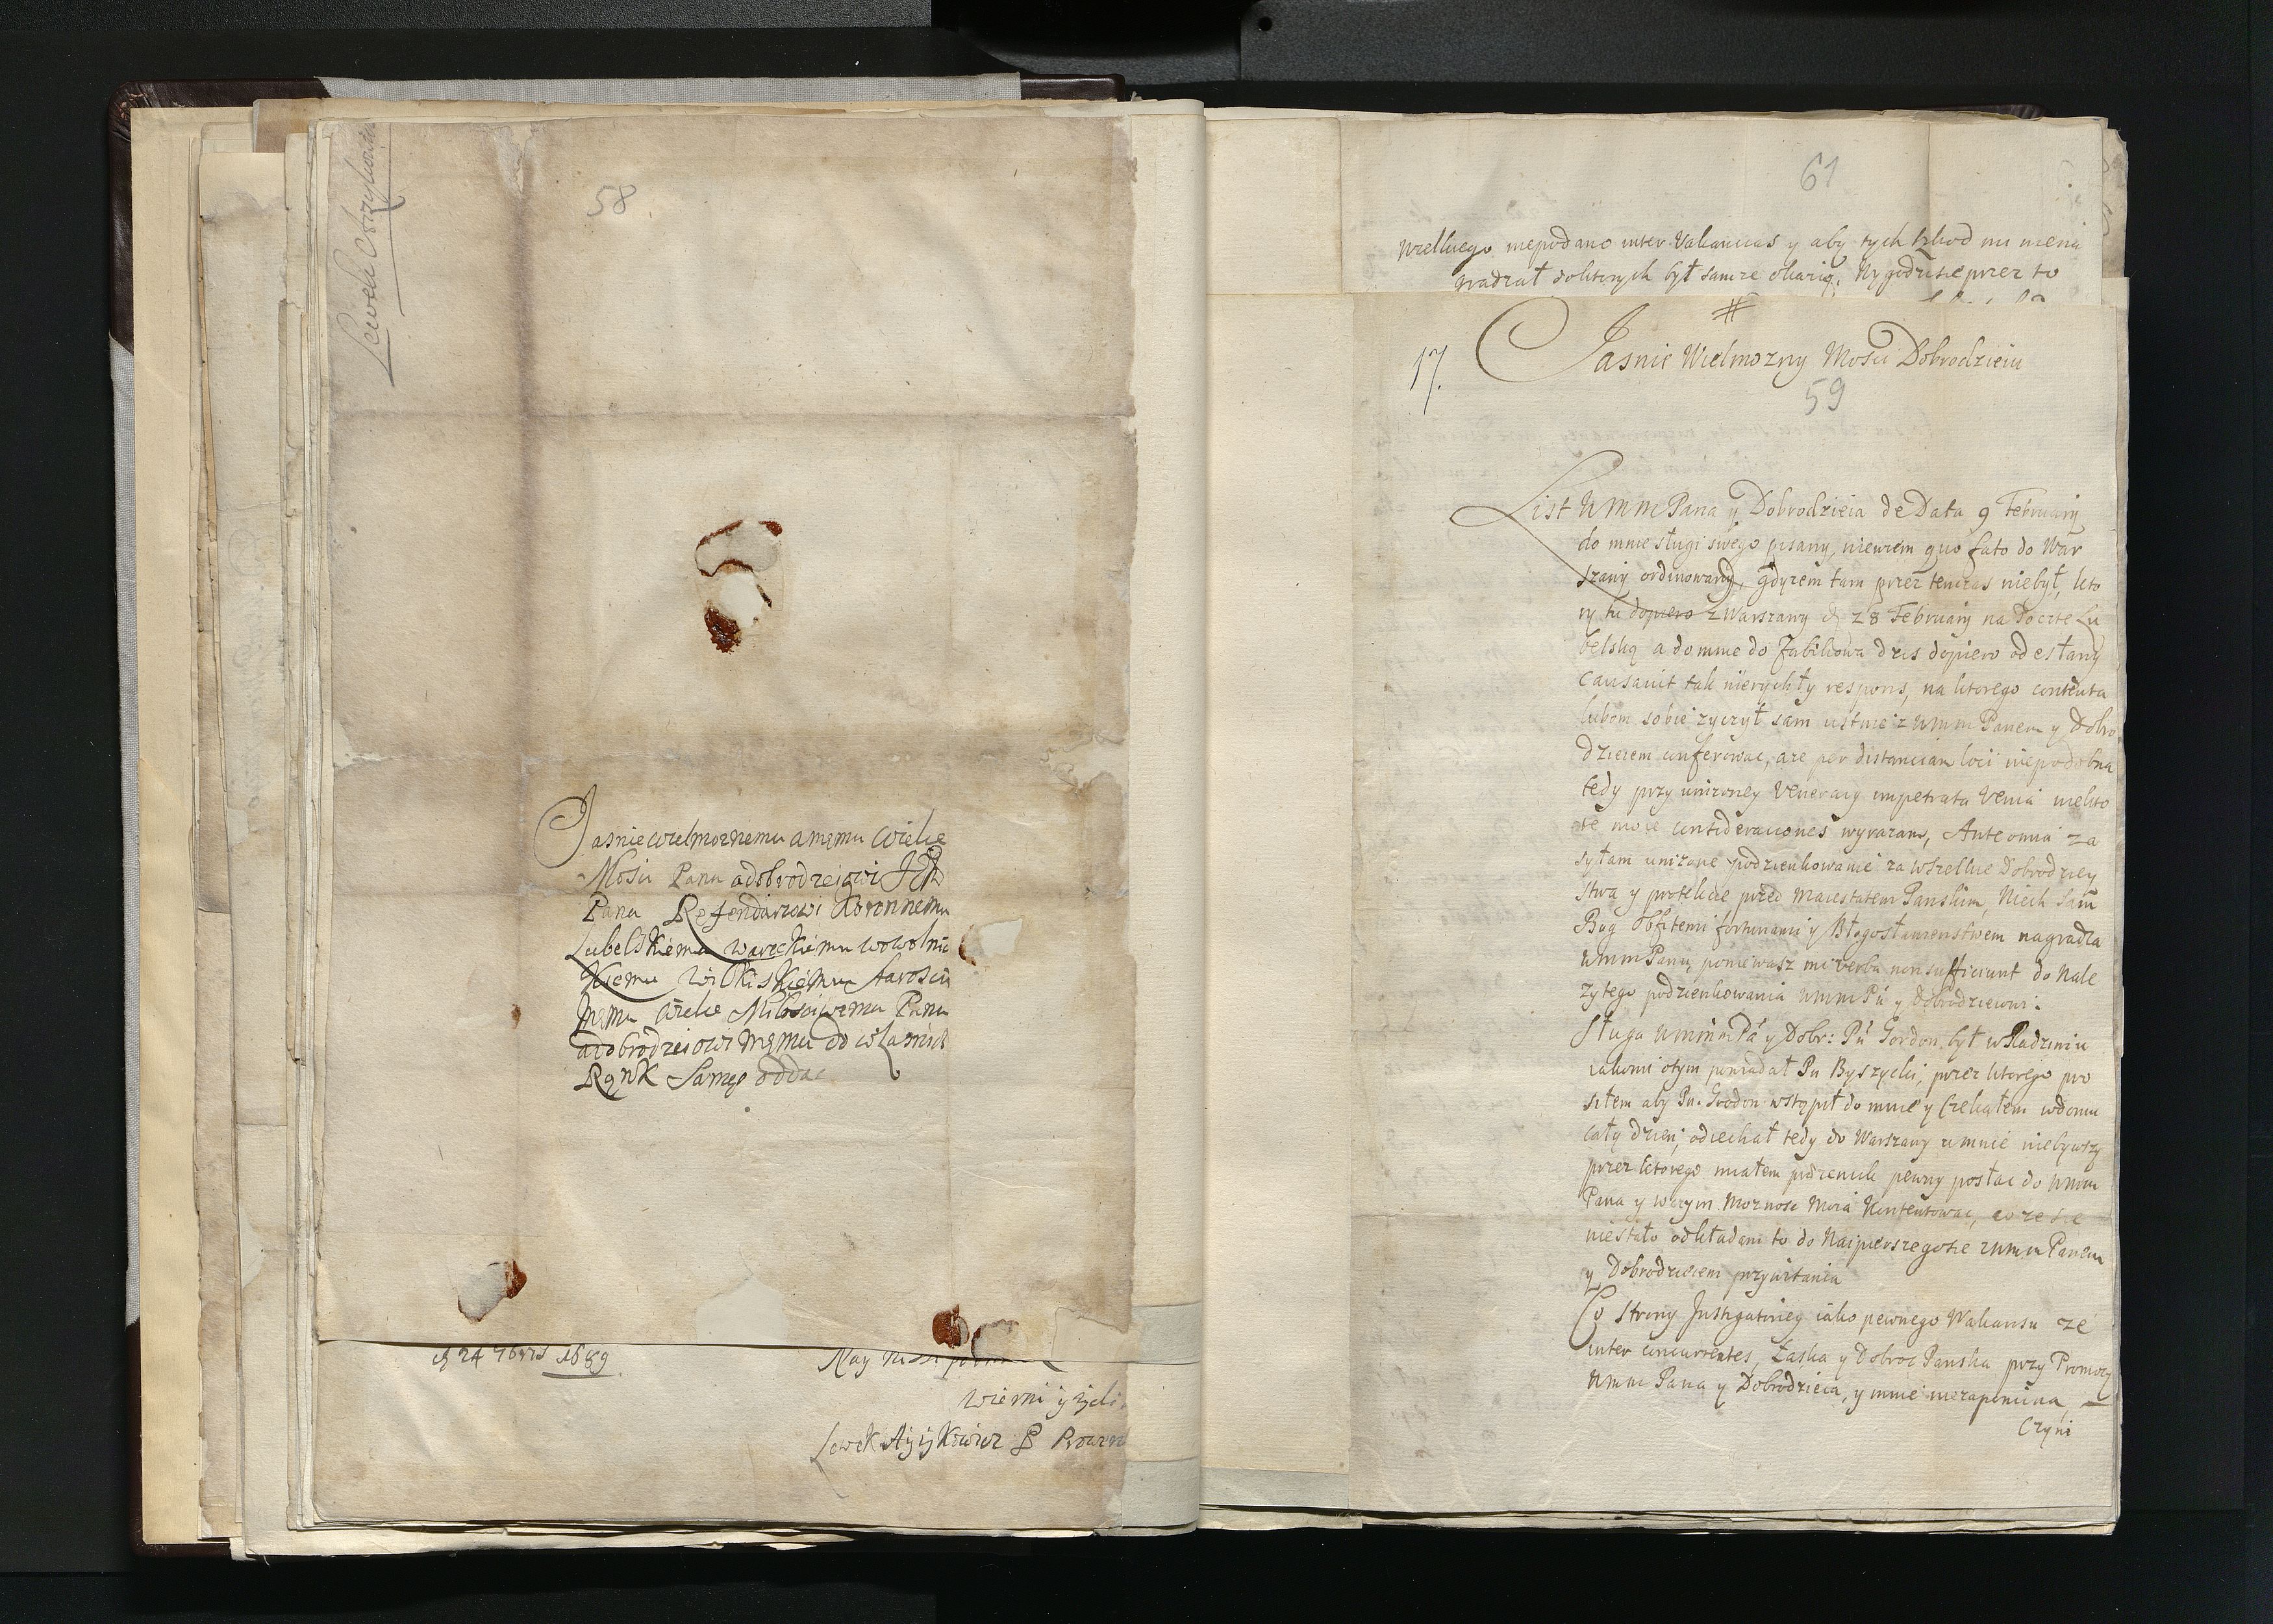 58
Jasniewielmoznemu amęmu Wielce
Mosci Panu adobrodzeiowi Je
Panu Refendarzowi Koronnemu
Lubelskiemu wareckiemu wowolnic
kiemu wilkiskiemu staroscie
męmu Wielce Miłosciwemu Panu
adobrodzeiowi męmu do własnich
Rąnk Samęo oddac
d 24 7bris 1689
Nay
wierni y
Lewek Ayzykowicz P
61
wielkiego niepodano inter Vakancias y aby tych szkod mi niena
gradzał doktorych był sam ze okazią. Wygodzisie przez to
17.
Jasnie Wielmozny Mosci Dobrodzieiu
59
List WMM Pana y Dobrodzieia de Data 9 February
do mnie sługi swego pisany, niewiem quo fato do War
szawy ordinowany, gdyzem tam przez tenczas niebył, kto
ry tu dopiero z Warszawy d 28 February na Poczte Lu
belską a do mnie do dzis dopiero odesłany
causavit tak nierychły respons, na ktorego contenta
lubom sobie zyczył sam ustnie z WMM Panem y Dobro
dzieiem conferowac, aze per distantiam loci niepodobna
tedy przy unizoney Veneracy impetrata Venia niekto
re moie consideraciones wyrazam, Ante omnia za
syłam unizone podzienkowanie za wszelkie Dobrodziey
stwa y protekcie przed Maiestatem Panskim, Niech Sam
Bog Obfitemi fortunami y Błogosławienstwem nagradza
WMM Panu, poniewasz mi verba non sufficiunt do Nale
zytego podzienkowania WMM Pu y Dobrodzieiowi.
Sługa WMM Pa y Dobr: Pu Gordon był w Radziniu
iako mi otym powiadał Pn Byszycki, przez ktorego pro
siłem aby Pn. Gordon wstąpił do mnie y Czekałem wdomu
cały dzien, odiechał tedy do Warszawy u mnie niebywszy
przez ktorego miałem pewny posłac do WMM
Pana y wczym moznosc Moia Kontentowac, co ze sie
niestało odkładam to do Naipierszegosie z WMM Panem
y Dobrodzieiem przywitania
Co strony Instigatoriey iako pewnego Wakansu ze
inter concurrentes, Łaska y Dobroc Panska przy Promocy
WMM Pana y Dobrodzieia, y mnie niezapomina,
Czyni